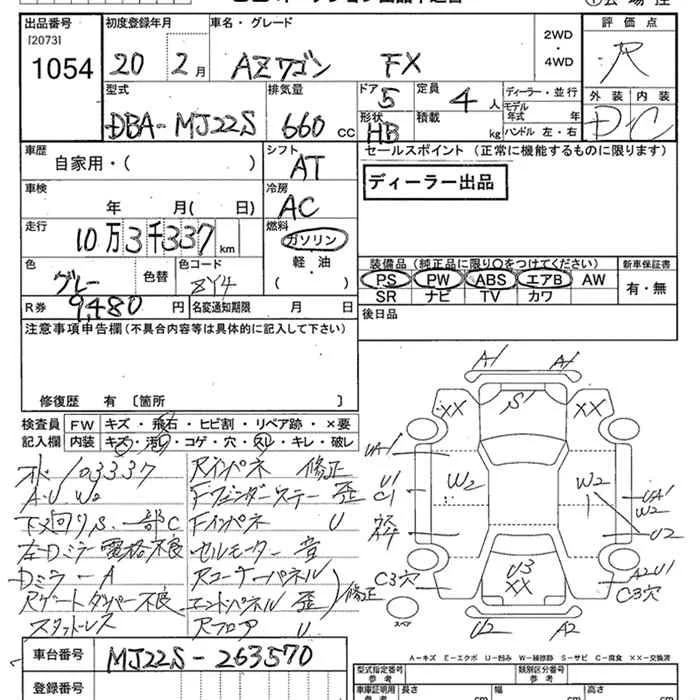 出品番号
[2073]
1054
初度登録年月
20 2月
車名・グレード
AZワゴン FX
2WD
・
4WD
評価点
R
外装 内装
D C
型式
DBA-MJ22S
排気量
660 CC
ドア
5
形状
HB
定員
4人
積載
kg
ディーラー・並行
モデル
年式 年
ハンドル 左・右
車歴
自家用・( )
シフト
AT
セールスポイント (正常に機能するものに限ります)
ディーラー出品
車検
年 月( 日)
冷房
AC
走行
10万3千337km
燃料
ガソリン
軽・油
( )
色
グレー
色替
色コード
ZY4
装備品(純正品に限り○をつけてください)
PS PW ABS エアB AW
SR ナビ TV カワ
新車保証書
有・無
R券
9,480 円
名変通知期限 月 日
後日品
注意事項申告欄(不具合内容等は具体的に記入して下さい)
修復歴 有〔箇所 〕
検査員
記入欄
FW キズ・飛石・ヒビ割・リペア跡・×要
内装 キズ・汚れ・コゲ・穴・スレ・キレ・破レ
103337
A・U W2
下又回りS、一部C
左Dミラー電格不良
Dミラー A
Rゲートダンパー不良
スタットレス
Rインパネ 修正
Fフェンダーステー 歪
Fインパネ U
セルモーター 音
Rコーナーパネル
エンドパネル 歪 修正
Rフロア U
A1 A1
XX S1 XX
UA1
U1
C1
W2
W2
UA1
W2
ウス
A4
U2
C3穴
U3
XX
A2U1
C3穴
スペア
U2 A2
A-キズ E-エクボ U-凹み W-補修跡 S-サビ C-腐食 ××-交換済
車台番号
MJ22S-263570
登録番号
型式指定番号
参考
類別区分番号
参考
車庫証明用
参考
長さ
cm
幅
cm
高さ
cm